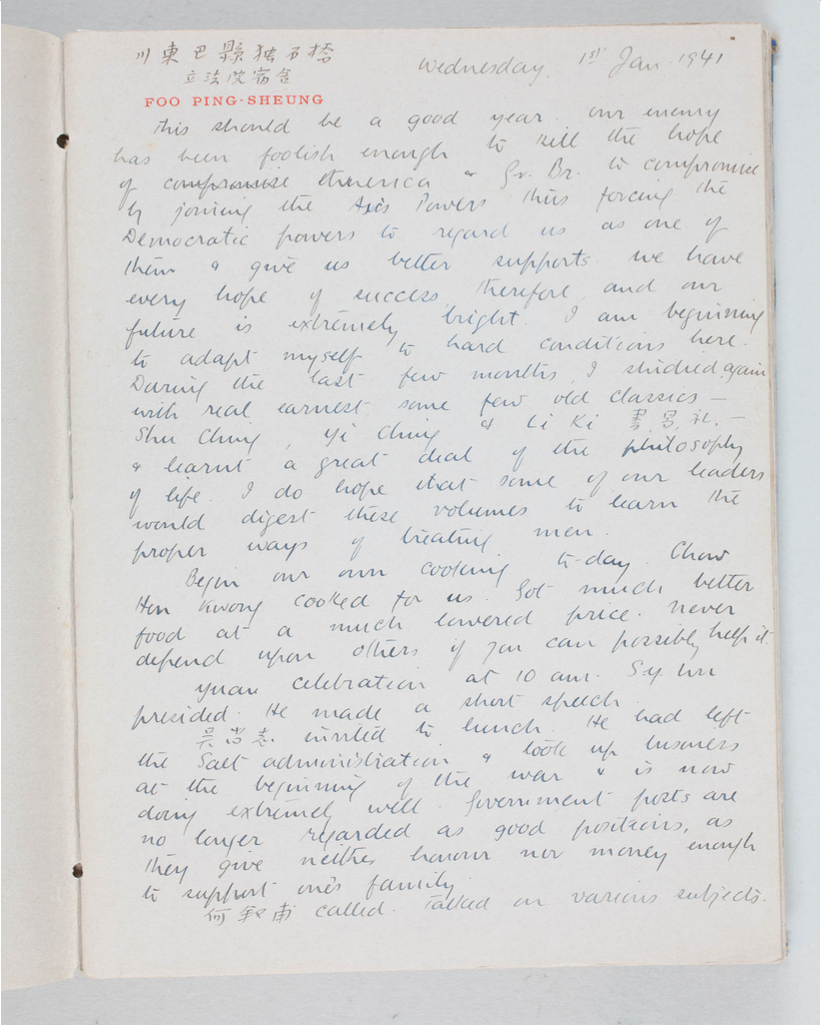 川東巴縣独石橋
立法院宿舍
Wednesday. 1st Jan. 1941
FOO PING-SHEUNG
This should be a good year. Our enemy
has been foolish enough to kill the hope
of compromise America & Gr. Br. to compromise
by joining the Axis Powers thus forcing the
Democratic powers to regard us as one of
them & give us better supports. We have
every hope of success, therefore, and our
future is extremely bright. I am beginning
to adapt myself to hard conditions here.
During the last few months, I studied again
with real earnest some few old classics —
Shu Ching, Yi Ching & Li Ki 書, 易, 礼. —
& learnt a great deal of the philosophy
of life. I do hope that some of our leaders
would digest these volumes to learn the
proper ways of treating men.
Begin our own cooking to-day. Chow
Hon Kwong cooked for us. Got much better
food at a much lowered price. Never
depend upon others if you can possibly help it.
Yuan celebration at 10 am. Sy.
presided. He made a short speech.
吳 志 invited to lunch. He had left
the Salt administration & took up business
at the beginning of the war & is now
doing extremely well. Government posts are
no longer regarded as good positions, as
they give neither honour nor money enough
to support one's family.
何 甫 called. Talked on various subjects.